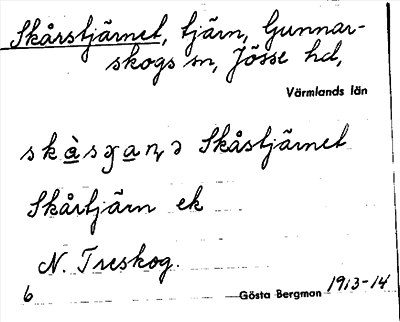 Skårstjärnet, tjärn, Gunnar-
skogs sn, Jösse hd,
Värmlands län
Skåstjärnet
Skårtjärn ek
N. Treskog.
6
Gösta Bergman 1913-14